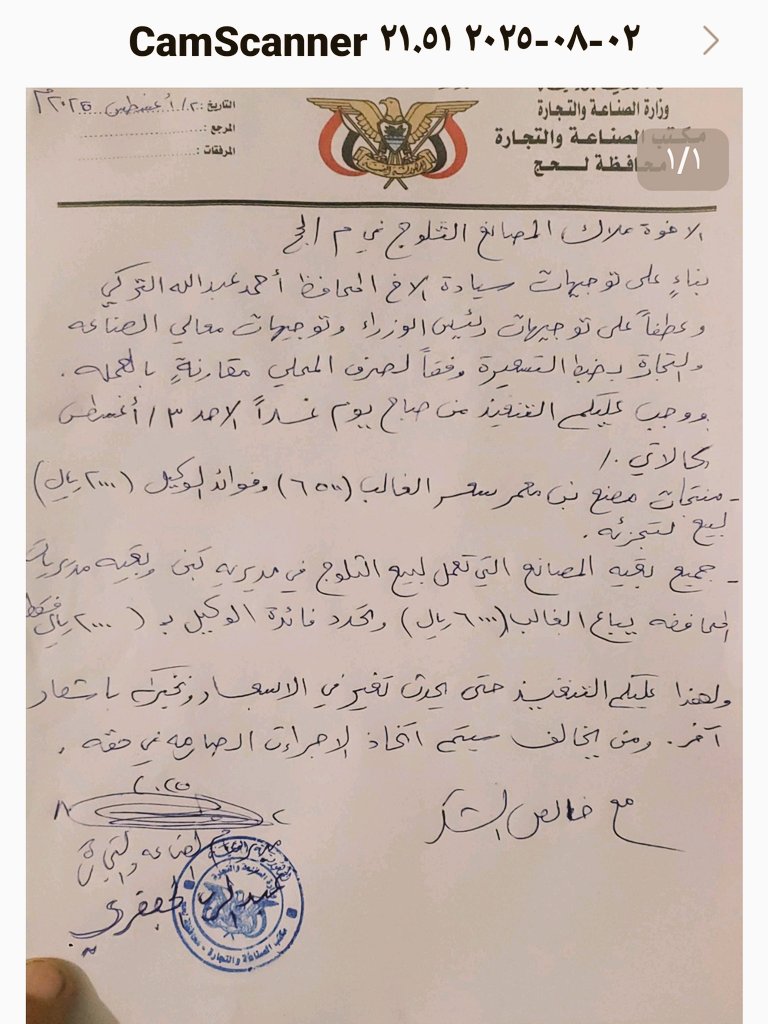 CamScanner ٠٢-٠٨-٢٠٢٥ ٢١.٥١
١/١
وزارة الصناعة والتجارة
مكتب الصناعة والتجارة
محافظة لحج
التاريخ: ٢/أغسطس ٢٠٢٥م
المرجع:
المرفقات:
الاخوة ملاك المصانع الثلوج في م/لحج
بناءٍ على توجيهات سيادة الاخ المحافظ أحمد عبدالله التركي
وعطفاً على توجيهات رئيس الوزراء وتوجيهات معالي الصناعه
والتجارة بضبط التسعيرة وفقاً لصرف المحلي مقارنةٍ بالعمله.
ووجب عليكم التنفيذ من صباح يوم غداً الاحد ٣/أغسطس
كالاتي/.
- منتجات مصنع بن معمر سعر القالب (٦٥٠٠) وفوائد الوكيل (٢٠٠٠ ريال)
لبيع لتجزئه.
- جميع بقيه المصانع التي تعمل لبيع الثلوج في مديريه تبن وبقيه مديريات
المحافضه يباع القالب (٦٠٠٠ ريال) وتحدد فائدة الوكيل بـ (٢٠٠٠ ريال فقط
ولهذا عليكم التنفيذ حتى يحدث تغير في الاسعار ونخبركم باشعار
آخر. ومن يخالف سيتم اتخاذ الاجراءت الصارمه في حقه.
مع خالص الشكر
٢٠٢٥
٨ ٢
الصناعه والتجارة
الجعفري
مكتب الصناعة والتجارة - محافظة لحج